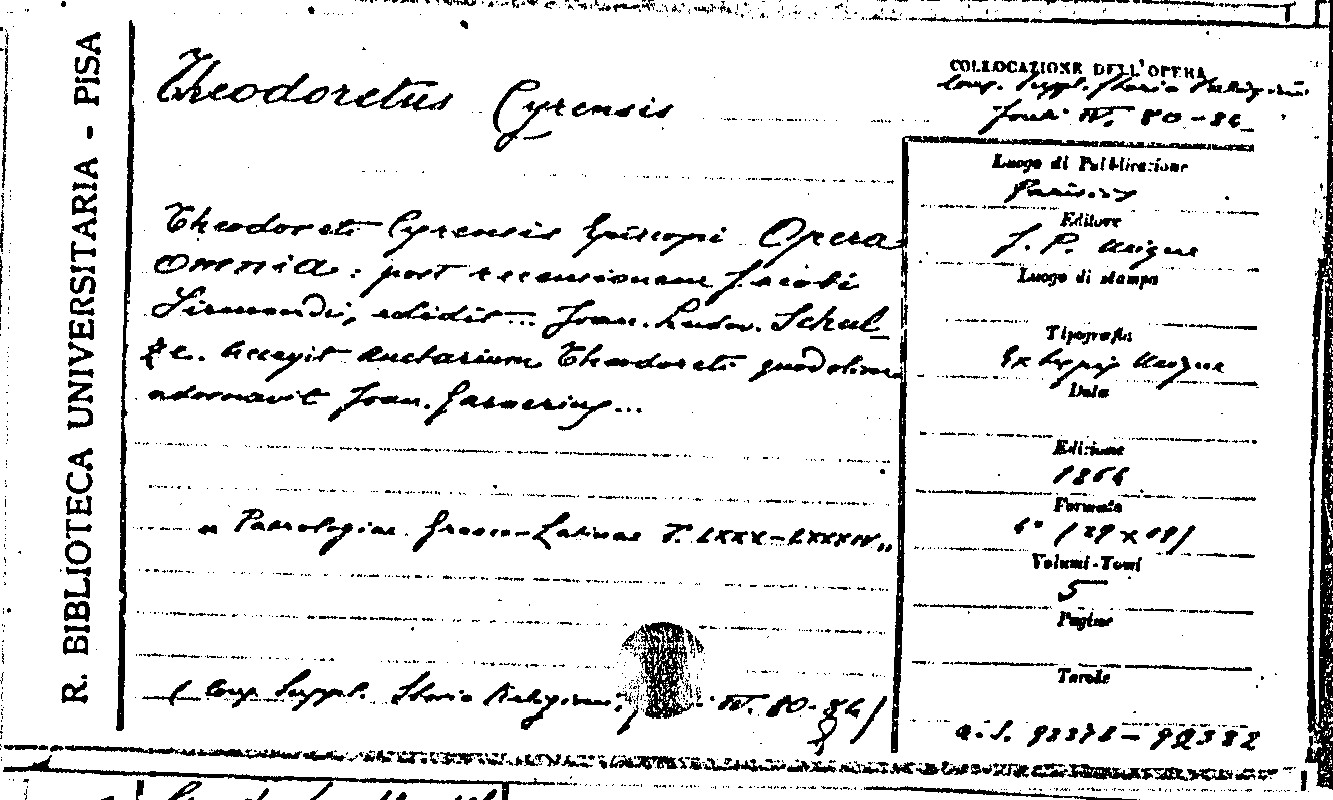 R. BIBLIOTECA UNIVERSITARIA - PISA
Theodoretus Cyrensis
COLLOCAZIONE DELL'OPERA
Coup. Suppl. Storia Religioni
Fonti IV. 80-84
Theodoreti Cyrensis Episcopi Opera
omnia: post recensionem Jacobi
Sirmondi, edidit... Joan. Ludov. Schul-
ze. Accepit auctarium Theodoreti quod olim
adornavit Joan. Garnerius...
„ Patrologiae Graeco-Latinae T. LXXX-LXXXIV„
( Coup. Suppl. Storia Religioni, IV. 80-84)
Luogo di Pubblicazione
Parisiis
Editore
J. P. Migne
Luogo di stampa
Tipografia
Ex typis Migne
Data
Edizione
1864
Formato
4° (29 x 19)
Volumi-Tomi
5
Pagine
Tavole
a. s. 92378-92382